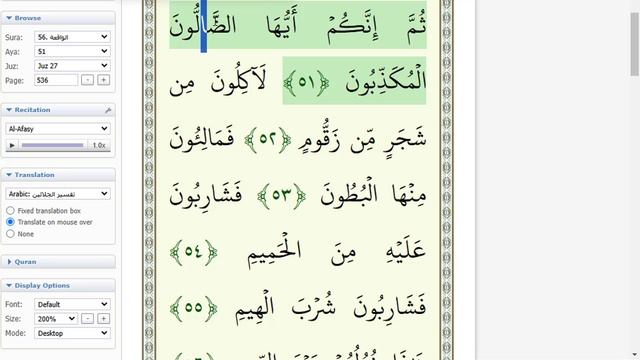 Browse
Sura: 56. الواقعة
Aya: 51
Juz: Juz 27
Page: 536
Recitation
Al-Afasy
1.0x
Translation
Arabic: تفسير الجلالين
Fixed translation box
Translate on mouse over
None
Quran
Display Options
Font: Default
Size: 200%
Mode: Desktop
ثُمَّ إِنَّكُمْ أَيُّهَا الضَّالُّونَ
الْمُكَذِّبُونَ ﴿٥١﴾ لَآكِلُونَ مِن
شَجَرٍ مِّن زَقُّومٍ ﴿٥٢﴾ فَمَالِئُونَ
مِنْهَا الْبُطُونَ ﴿٥٣﴾ فَشَارِبُونَ
عَلَيْهِ مِنَ الْحَمِيمِ ﴿٥٤﴾
فَشَارِبُونَ شُرْبَ الْهِيمِ ﴿٥٥﴾